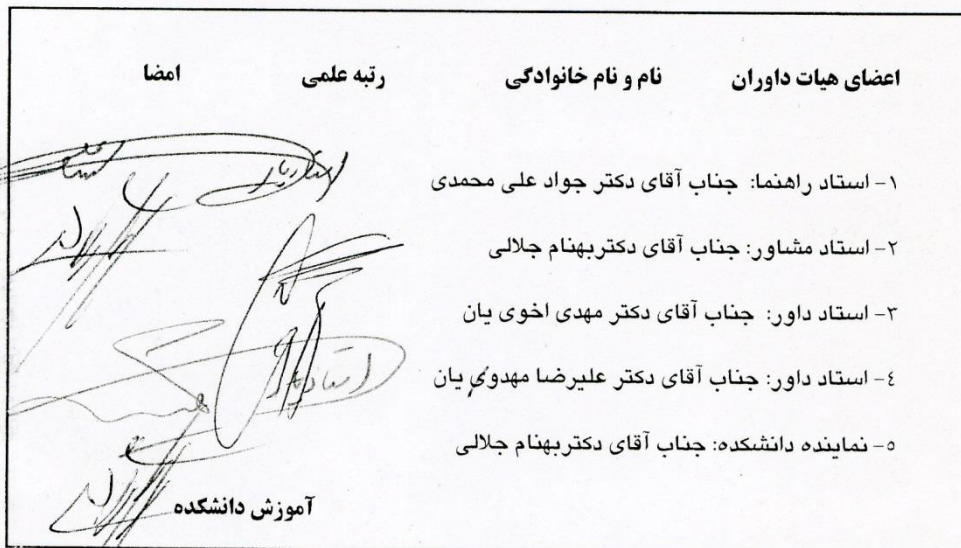 اعضای هیات داوران نام و نام خانوادگی رتبه علمی امضا
۱- استاد راهنما: جناب آقای دکتر جواد علی محمدی استادیار
۲- استاد مشاور: جناب آقای دکتربهنام جلالی
۳- استاد داور: جناب آقای دکتر مهدی اخوی یان
۴- استاد داور: جناب آقای دکتر علیرضا مهدوی یان استادیار
۵- نماینده دانشکده: جناب آقای دکتربهنام جلالی
آموزش دانشکده